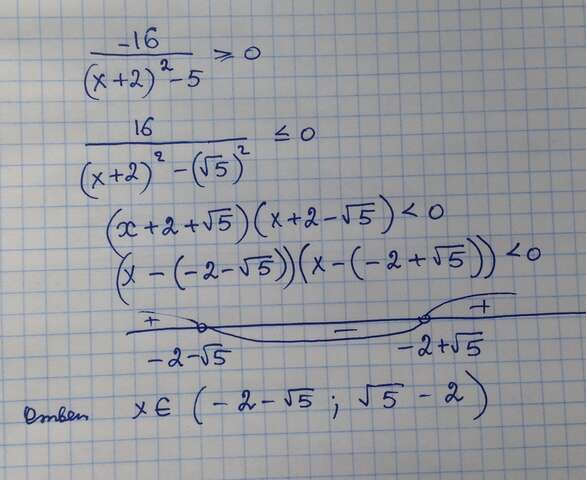 -16/((x+2)² - 5) ≥ 0
16/((x+2)² - (√5)²) ≤ 0
(x+2+√5)(x+2-√5) < 0
(x-(-2-√5))(x-(-2+√5)) < 0
+ - +
-2-√5 -2+√5
Ответ x∈(-2-√5; √5-2)